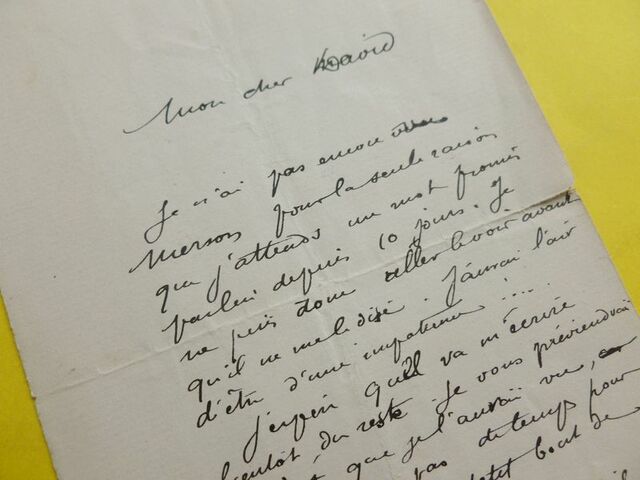 Mon cher David
Je n'ai pas encore vu
Merson pour la seule raison
que j'attends un mot promis
par lui depuis 10 jours. Je
ne puis donc aller le voir avant
qu'il ne me le dise. J'aurai l'air
d'être d'une impatience ....
J'espère qu'il va m'écrire
bientôt, du reste je vous préviendrai
que je l'aurai vu,
pas de temps pour
petit bout de